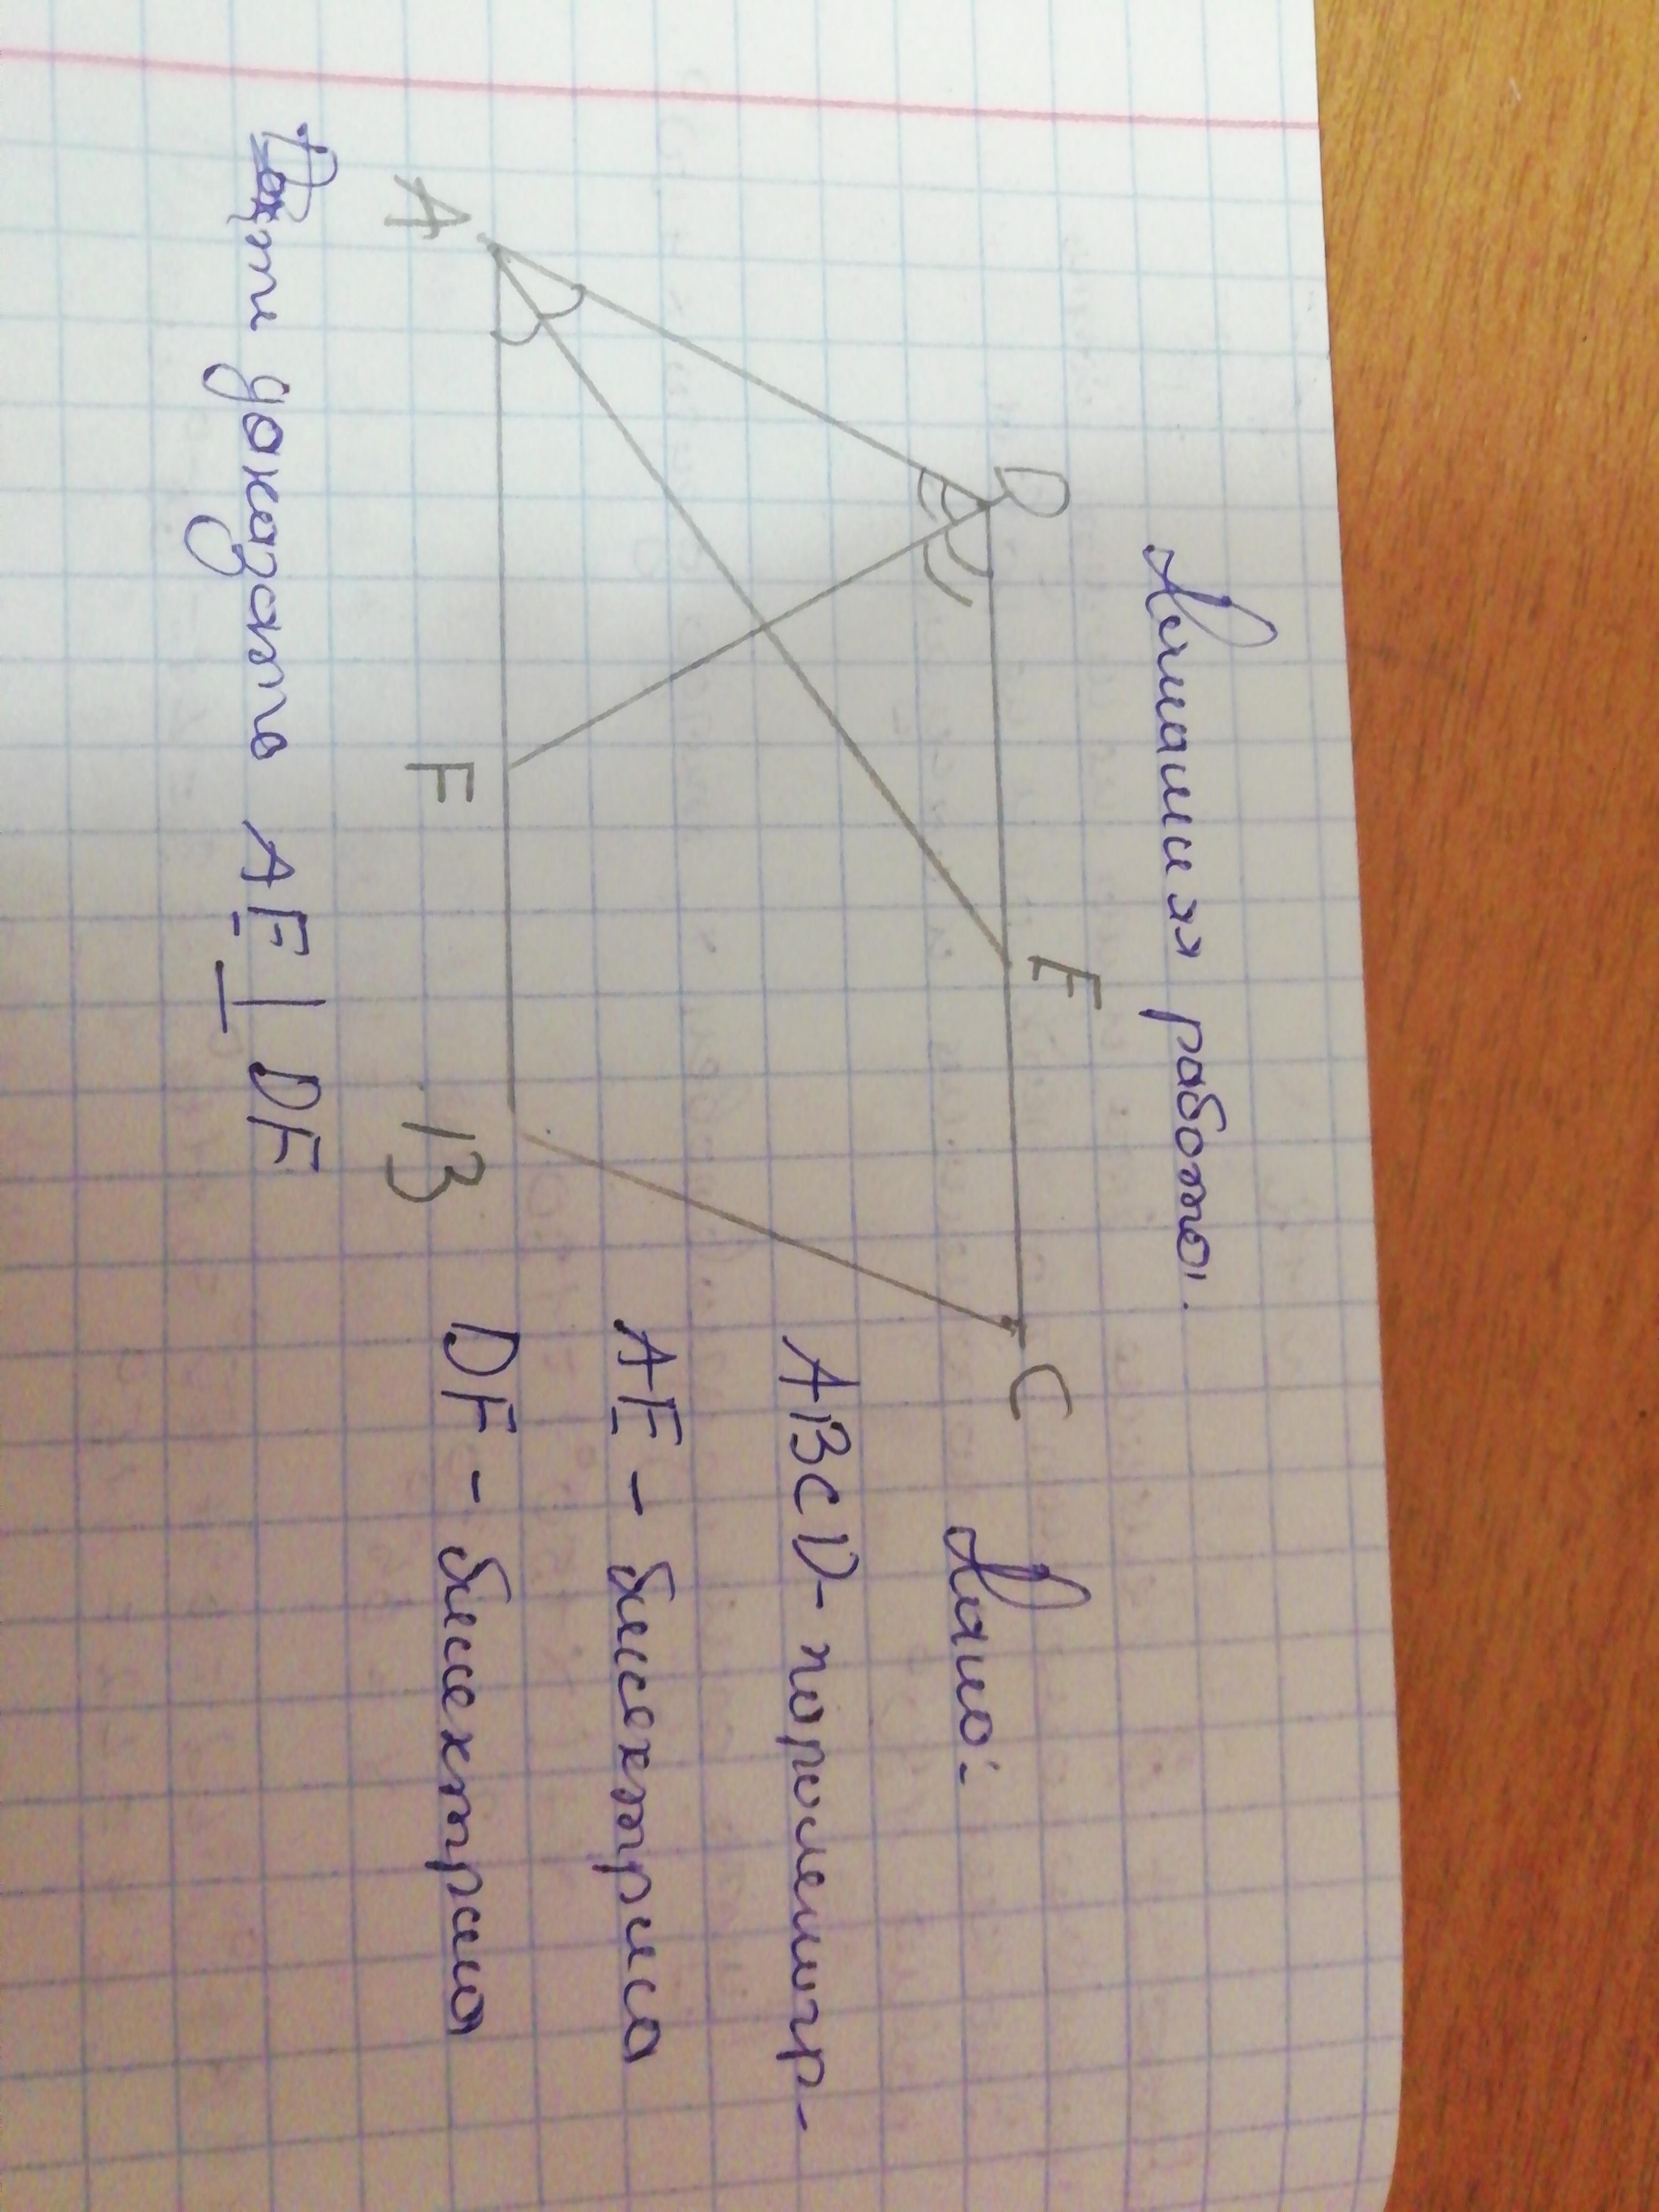 Домашняя работа.
D
E
C
A
F
B
Дано:
ABCD - паролеллогр-
AE - биссектриса
DF - биссектриса
доказать AE ⊥ DF